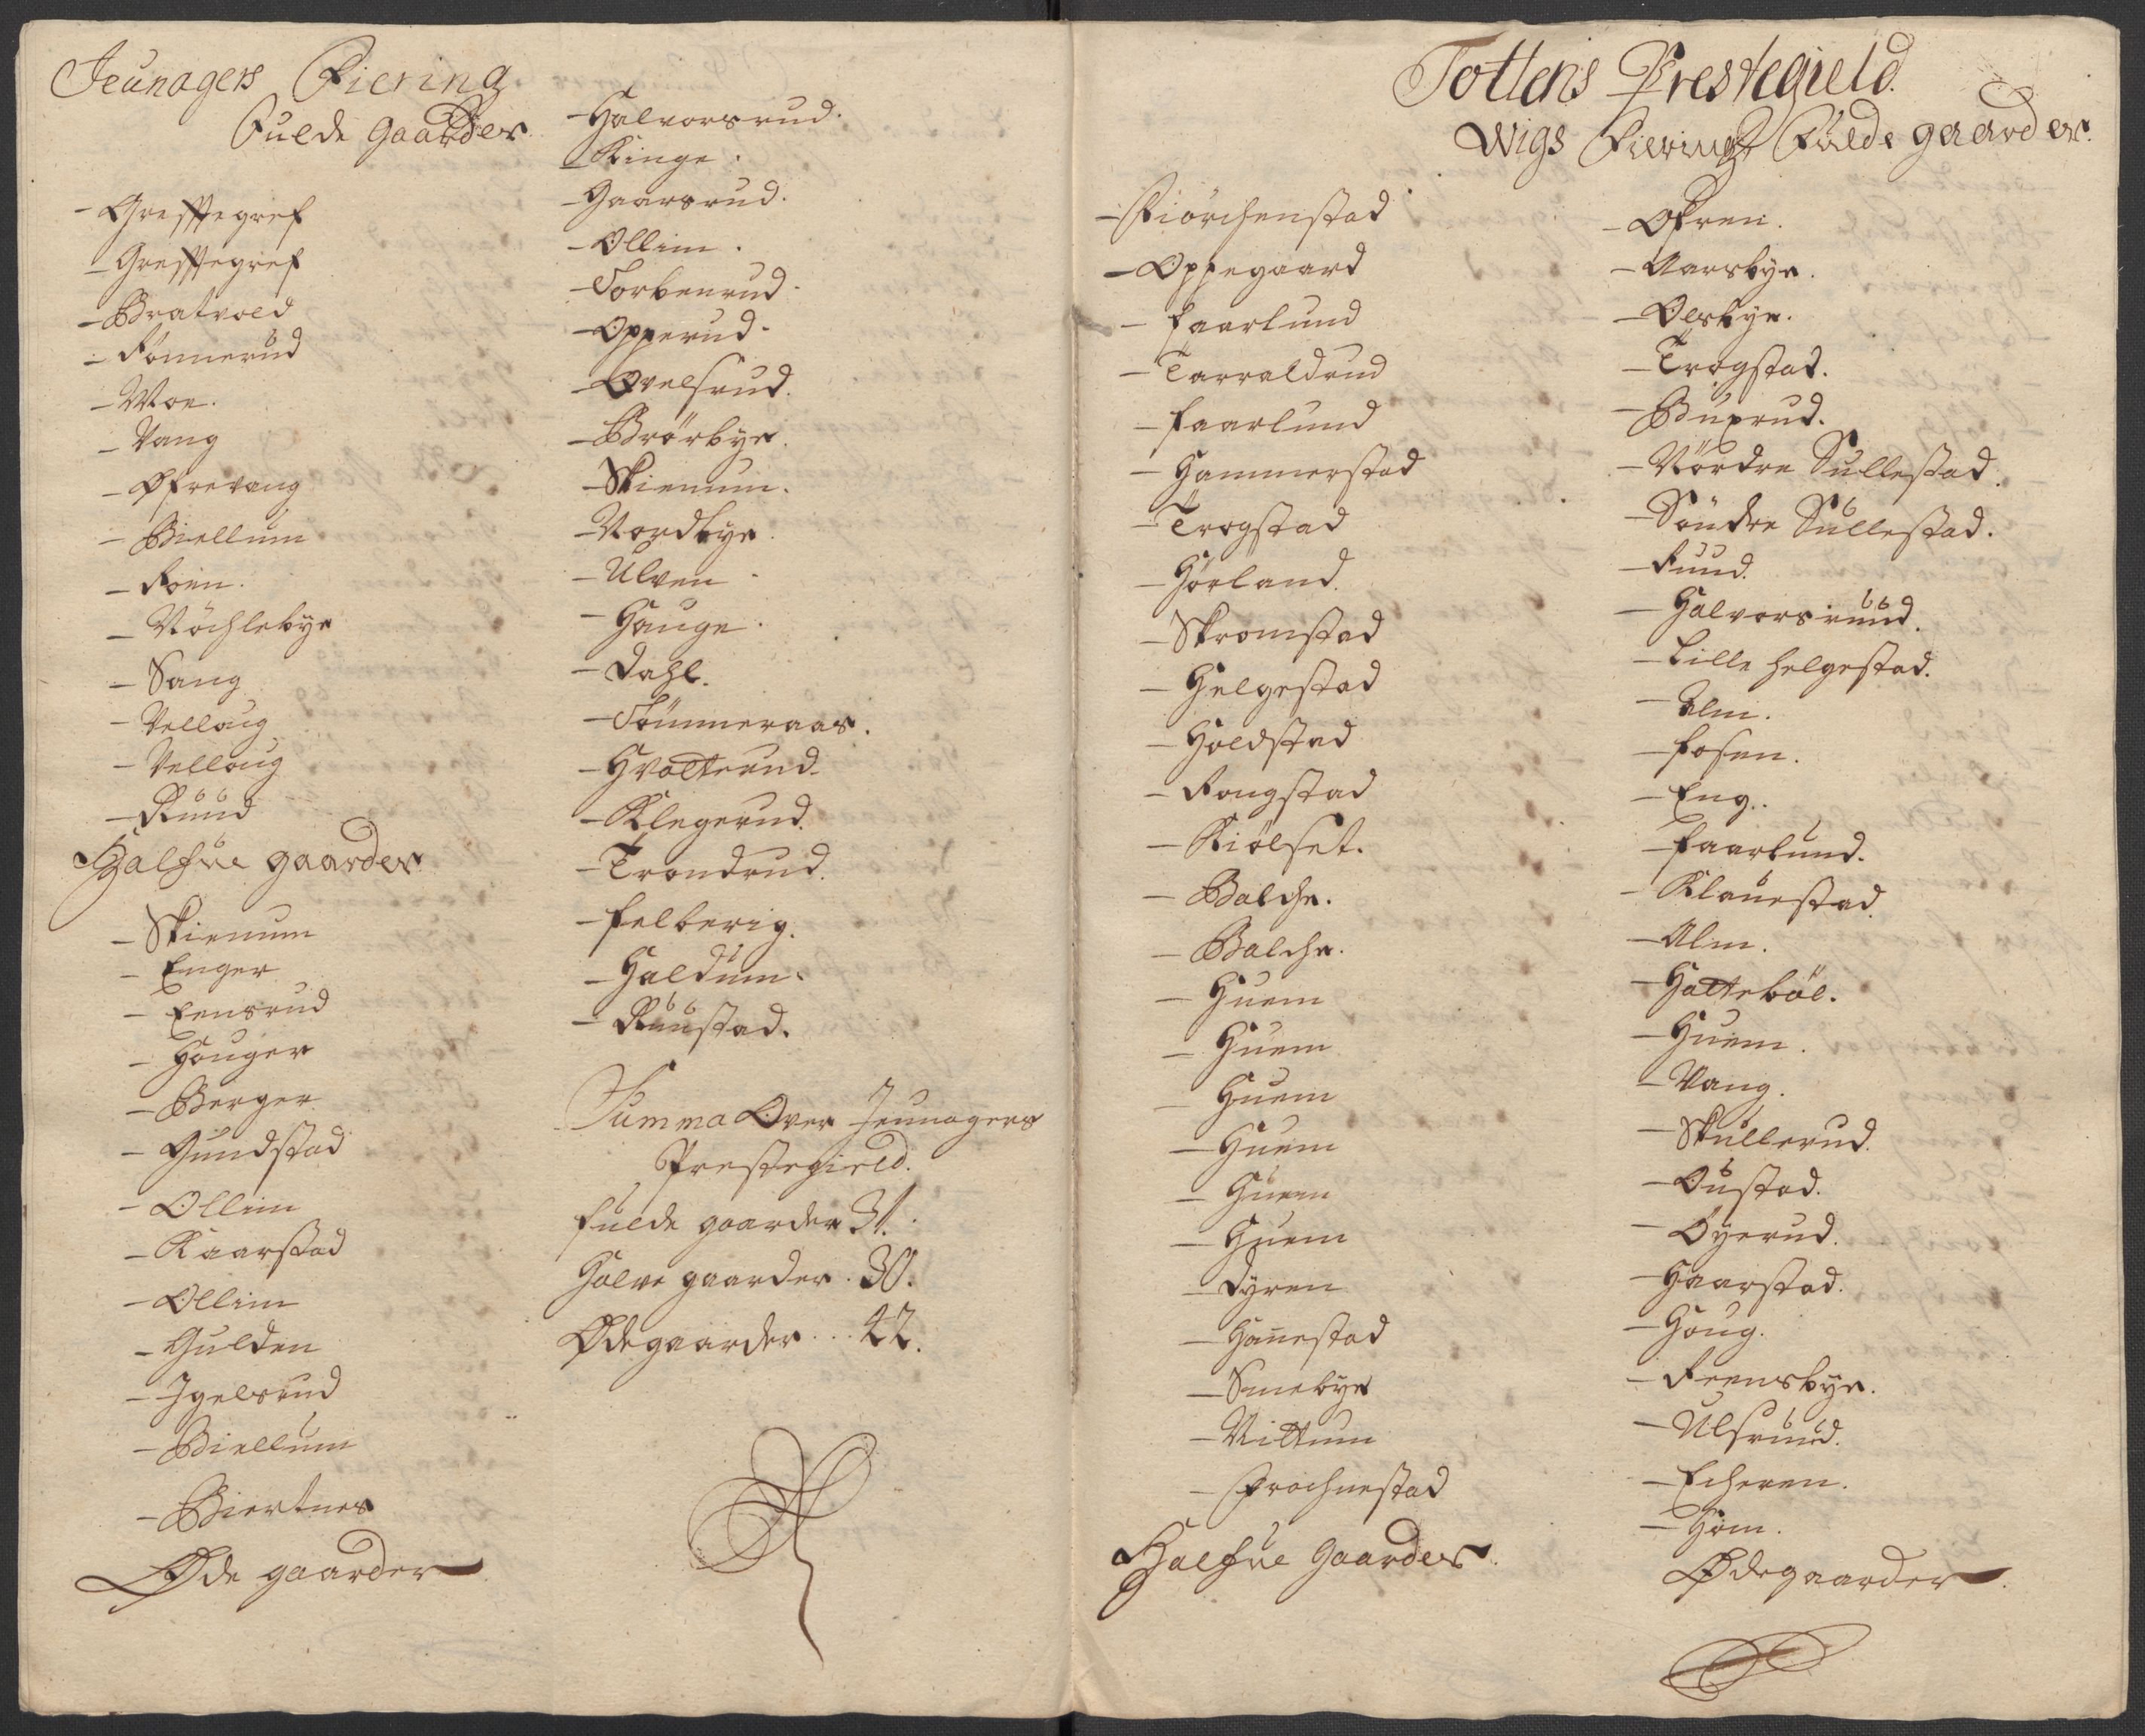 Jeunagers Fiering
Fulde Gaarder
- Greffegref
- Greffegref
- Bratvold
- Fønnerud
- Moe.
- Vang
- Øfrevang
- Biellum
- Roen.
- Nøchlebye
- Sang
- Velloug
- Velloug
- Ruud
Halfue gaarder
- Skienum
- Enger
- Eensrud
- Houger
- Berger
- Gundstad
- Ollim
- Kaarstad
- Ollim
- Gulden
- Igelsrud
- Biellum
- Biertnes
Øde gaarder
- Halvorsrud.
- Ringe.
- Gaarsrud.
- Ollim.
- Torbenrud.
- Opperud.
- Ovelsrud.
- Brörbye.
- Skienum.
- Nordbye.
- Ulven.
- Hauge.
- Dahl.
- Tömmeraas.
- Hvatterud.
- Klegerud.
- Trondrud.
- Felberig.
- Haldum.
- Ruustad.
Summa Over Jeunagers
Prestegield.
Fulde gaarder 31.
Halve gaarder. 30.
Ødegaarder... 42.
Tottens Prestegield.
Wigs Fiering Fulde gaarder.
- Fiörchenstad
- Oppegaard
- Faarlund
- Tarraldrud
- Faarlund
- Hammerstad
- Trogstad
- Hörland.
- Skromstad
- Helgestad
- Holdstad
- Rongstad
- Kiölset.
- Balche.
- Balche.
- Huem
- Huem
- Huem
- Huem
- Huem
- Huem
- Dyren
- Hannestad
- Smebye
- Vittum
- Frochnestad
Halfue Gaarder.
- Øfren.
- Aarsbye.
- Olsbye.
- Trogstad.
- Buxrud.
- Nördre Sullestad.
- Söndre Sullestad.
- Ruud.
- Halvorsruud.
- Lille Helgestad.
- Alm.
- Fosen.
- Eng.
- Faarlund.
- Klauestad.
- Alm.
- Hatteböl.
- Huem.
- Vang.
- Skullerud.
- Oustad.
- Öyerud.
- Haarstad.
- Houg.
- Reensbye.
- Ulsruud.
- Echeren.
- Hom.
Ødegaarder.